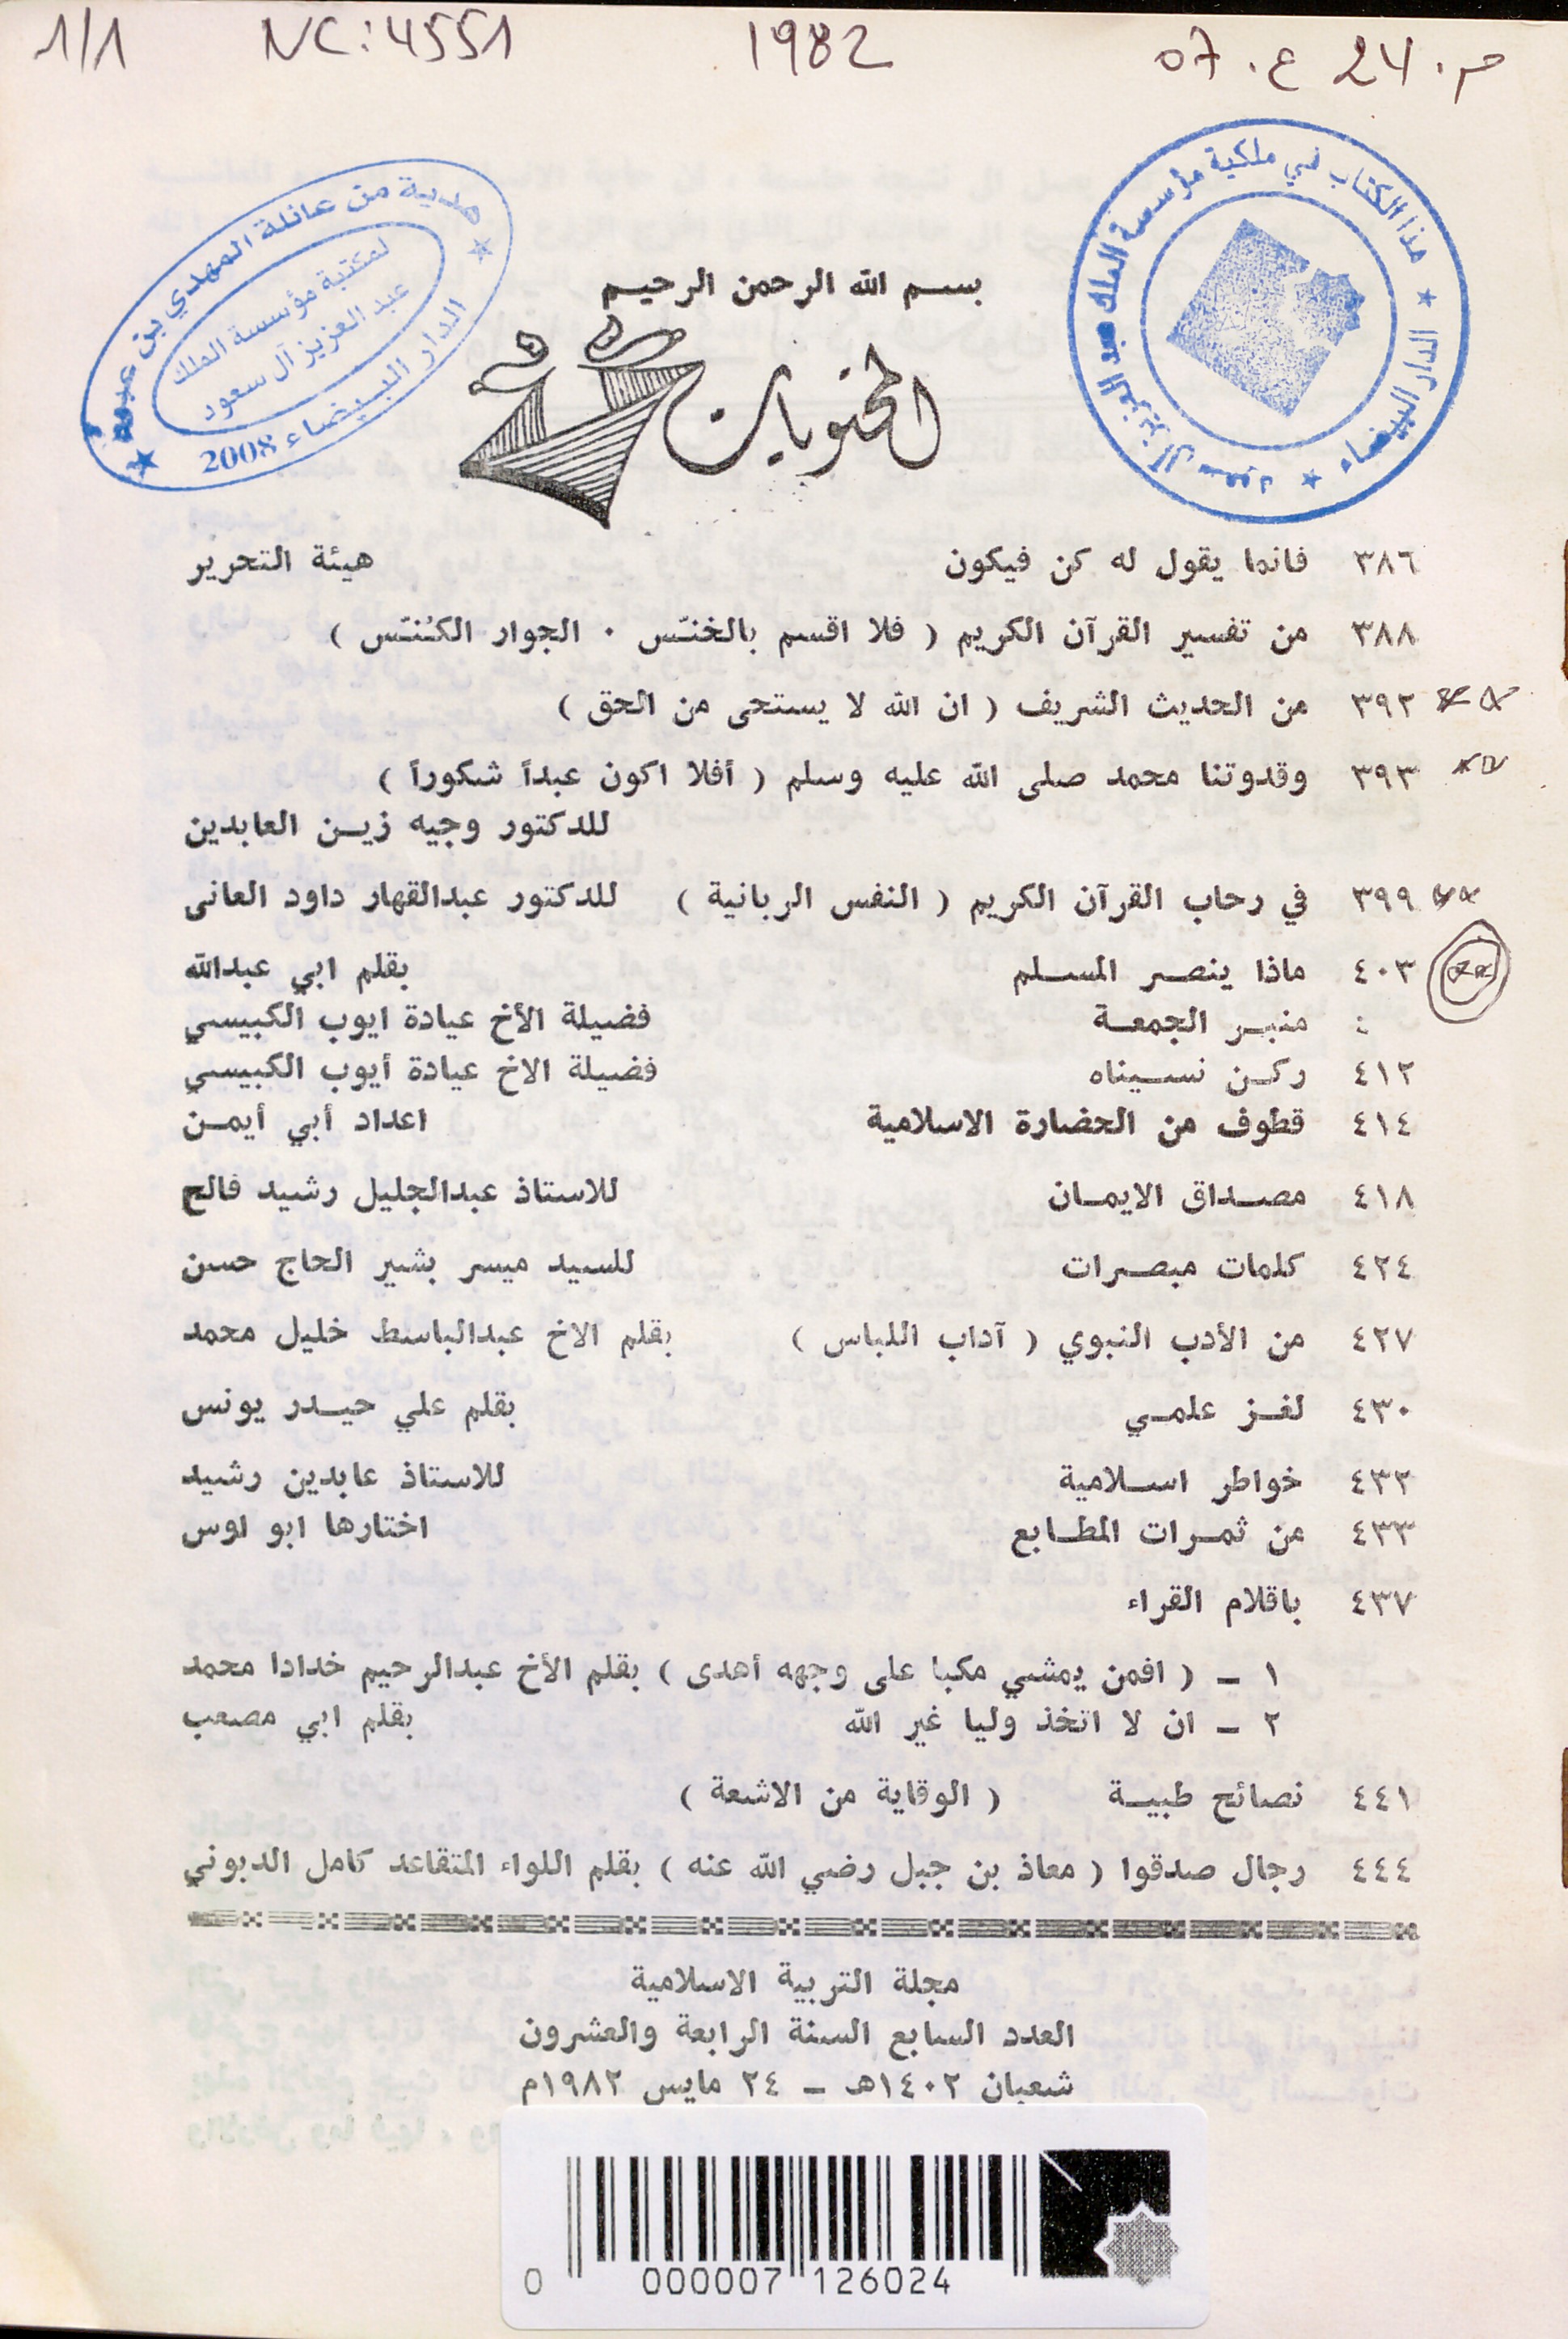 م. 24 ع. 07 1982 NC: 4551 1/1
هذا الكتاب في ملكية مؤسسة الملك عبد العزيز آل سعود
الدار البيضاء
هدية من عائلة المهدي بن عبود
لمكتبة مؤسسة الملك
عبد العزيز آل سعود
الدار البيضاء 2008
بسم الله الرحمن الرحيم
المحتويات
٣٨٦ فانما يقول له كن فيكون هيئة التحرير
٣٨٨ من تفسير القرآن الكريم ( فلا اقسم بالخنّس ٠ الجوار الكنّس )
٣٩٢ من الحديث الشريف ( ان الله لا يستحى من الحق )
٣٩٣ وقدوتنا محمد صلى الله عليه وسلم ( أفلا اكون عبداً شكوراً )
للدكتور وجيه زين العابدين
٣٩٩ في رحاب القرآن الكريم ( النفس الربانية ) للدكتور عبدالقهار داود العانى
٤٠٣ ماذا ينصر المسلم بقلم ابي عبدالله
: منبر الجمعة فضيلة الأخ عيادة ايوب الكبيسي
٤١٢ ركن نسيناه فضيلة الاخ عيادة أيوب الكبيسي
٤١٤ قطوف من الحضارة الاسلامية اعداد أبي أيمن
٤١٨ مصداق الايمان للاستاذ عبدالجليل رشيد فالح
٤٢٤ كلمات مبصرات للسيد ميسر بشير الحاج حسن
٤٢٧ من الأدب النبوي ( آداب اللباس ) بقلم الاخ عبدالباسط خليل محمد
٤٣٠ لغز علمي بقلم علي حيدر يونس
٤٣٢ خواطر اسلامية للاستاذ عابدين رشيد
٤٣٣ من ثمرات المطابع اختارها ابو اوس
٤٣٧ باقلام القراء
١ - ( افمن يمشي مكبا على وجهه أهدى ) بقلم الأخ عبدالرحيم خدادا محمد
٢ - ان لا اتخذ وليا غير الله بقلم ابي مصعب
٤٤١ نصائح طبية ( الوقاية من الاشعة )
٤٤٤ رجال صدقوا ( معاذ بن جبل رضي الله عنه ) بقلم اللواء المتقاعد كامل الدبوني
مجلة التربية الاسلامية
العدد السابع السنة الرابعة والعشرون
شعبان ١٤٠٢هـ - ٢٤ مايس ١٩٨٢م
0 000007 126024